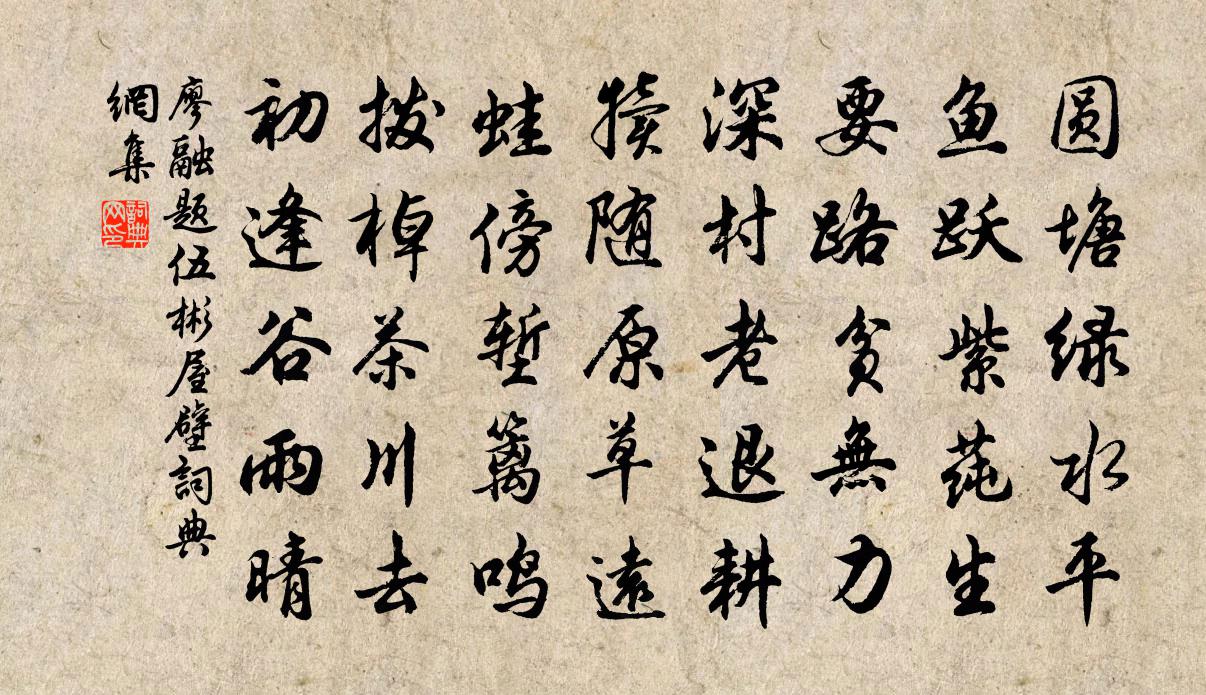 圆塘绿水平
鱼跃紫莼生
要路贫無力
深村老退耕
犊随原草遠
蛙傍堑篱鸣
拨棹茶川去
初逢谷雨晴
廖融题伍彬屋壁詞典
網集
詞典网印